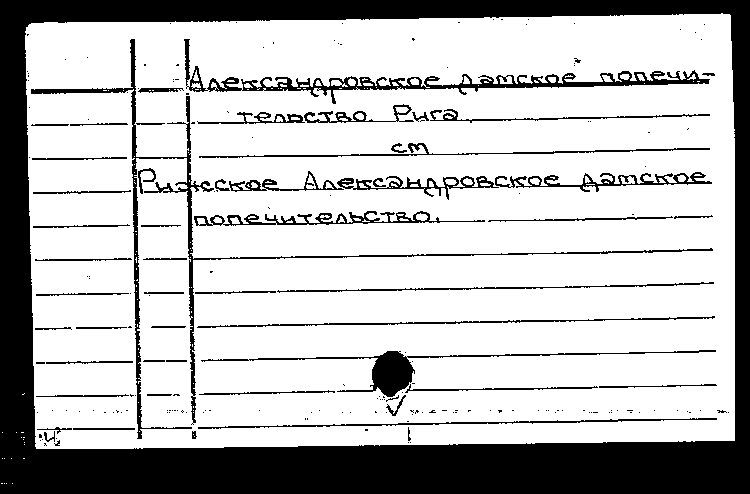 Александровское датское попечи-
тельство. Рига.
см
Рижское Александровское датское
попечительство.